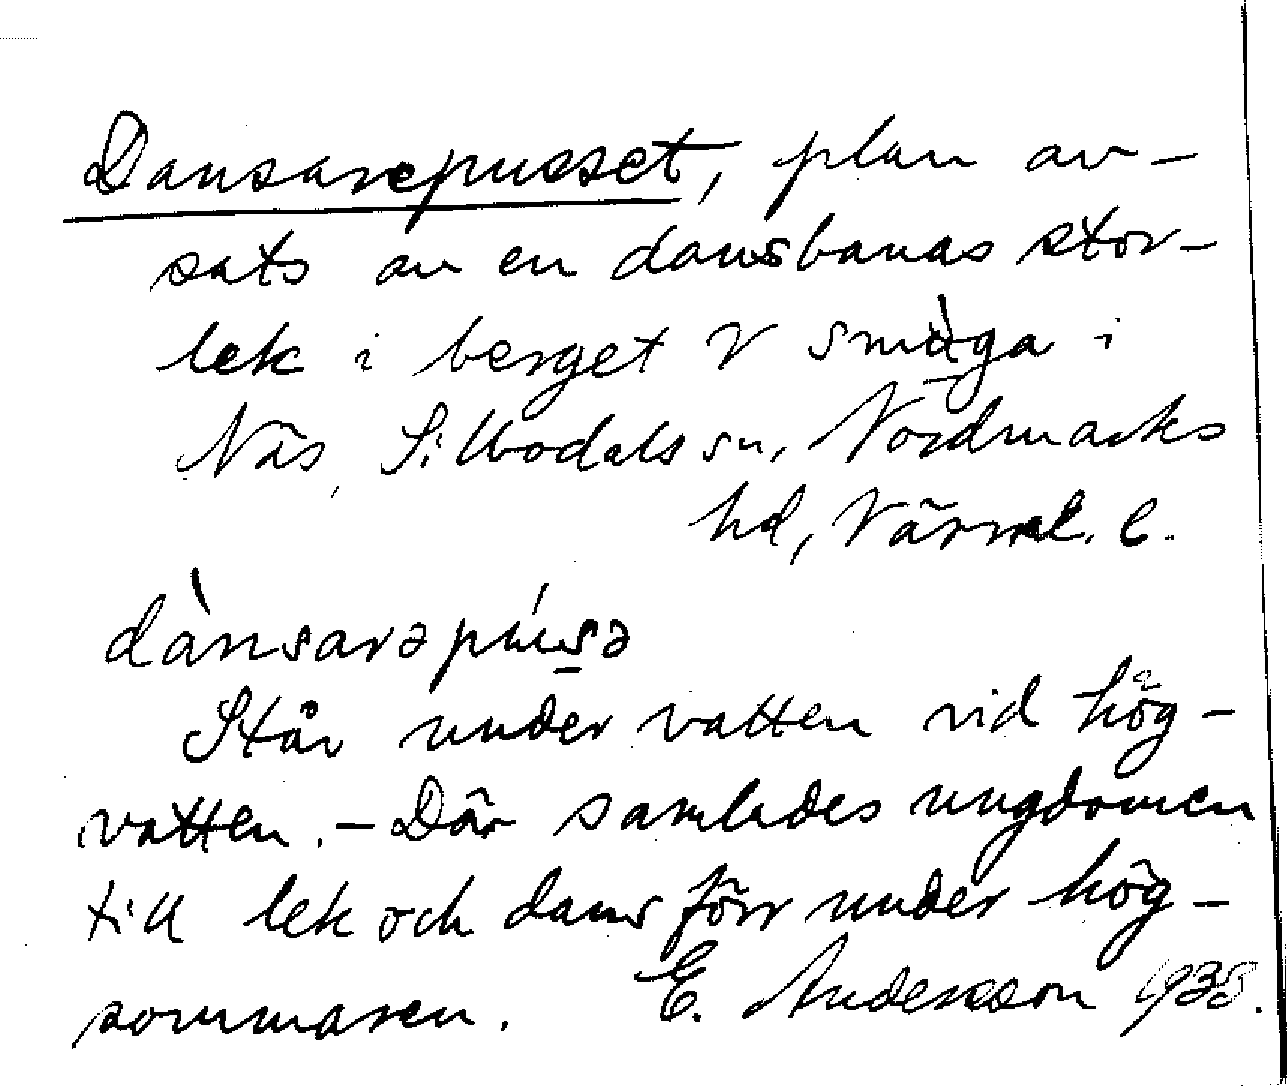 Dansarepusset, plan av-
sats av en dansbanas stor-
lek i berget V smùga i
Näs, Sillbodals sn, Nordmarks
hd, Värml. l.
dànsarəpúsə
Står under vatten vid hög-
vatten. - Där samlades ungdomen
till lek och dans förr under hög-
sommaren. E. Andersson 1938.